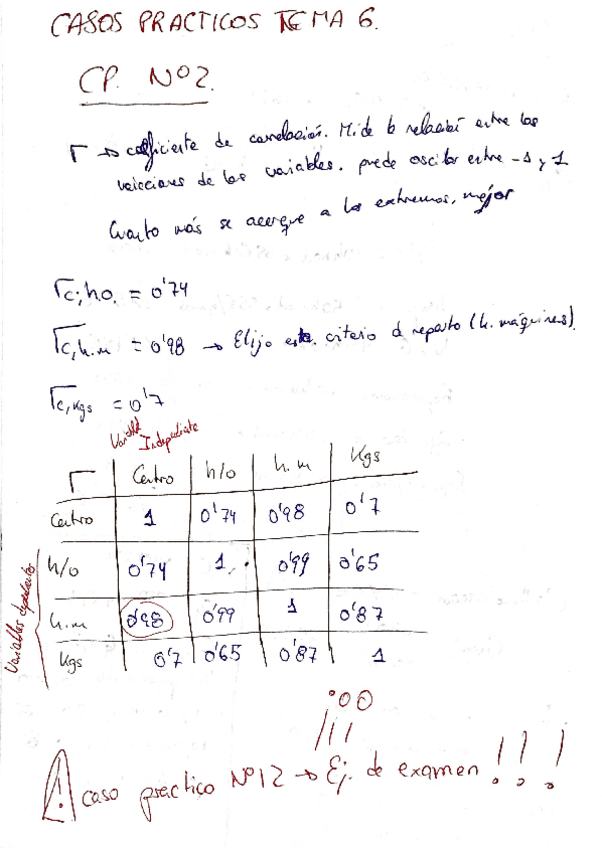 CASOS PRACTICOS TEMA 6.
CP. Nº2.
r → coeficiente de correlación. Mide la relación entre las
variaciones de las variables. puede oscilar entre -1 y 1
Cuanto más se acerque a los extremos, mejor
rc;h.o. = 0'74
rc,h.m = 0'98 → Elijo este criterio d reparto (h. máquinas).
rc,kgs = 0'7
Variable Independiente
r Centro h/o h.m Kgs
Centro 1 0'74 0'98 0'7
h/o 0'74 1 0'99 0'65
h.m 0'98 0'99 1 0'87
Kgs 0'7 0'65 0'87 1
Variables dependientes
¡¡¡
! caso practico Nº12 → Ej. de examen !!!